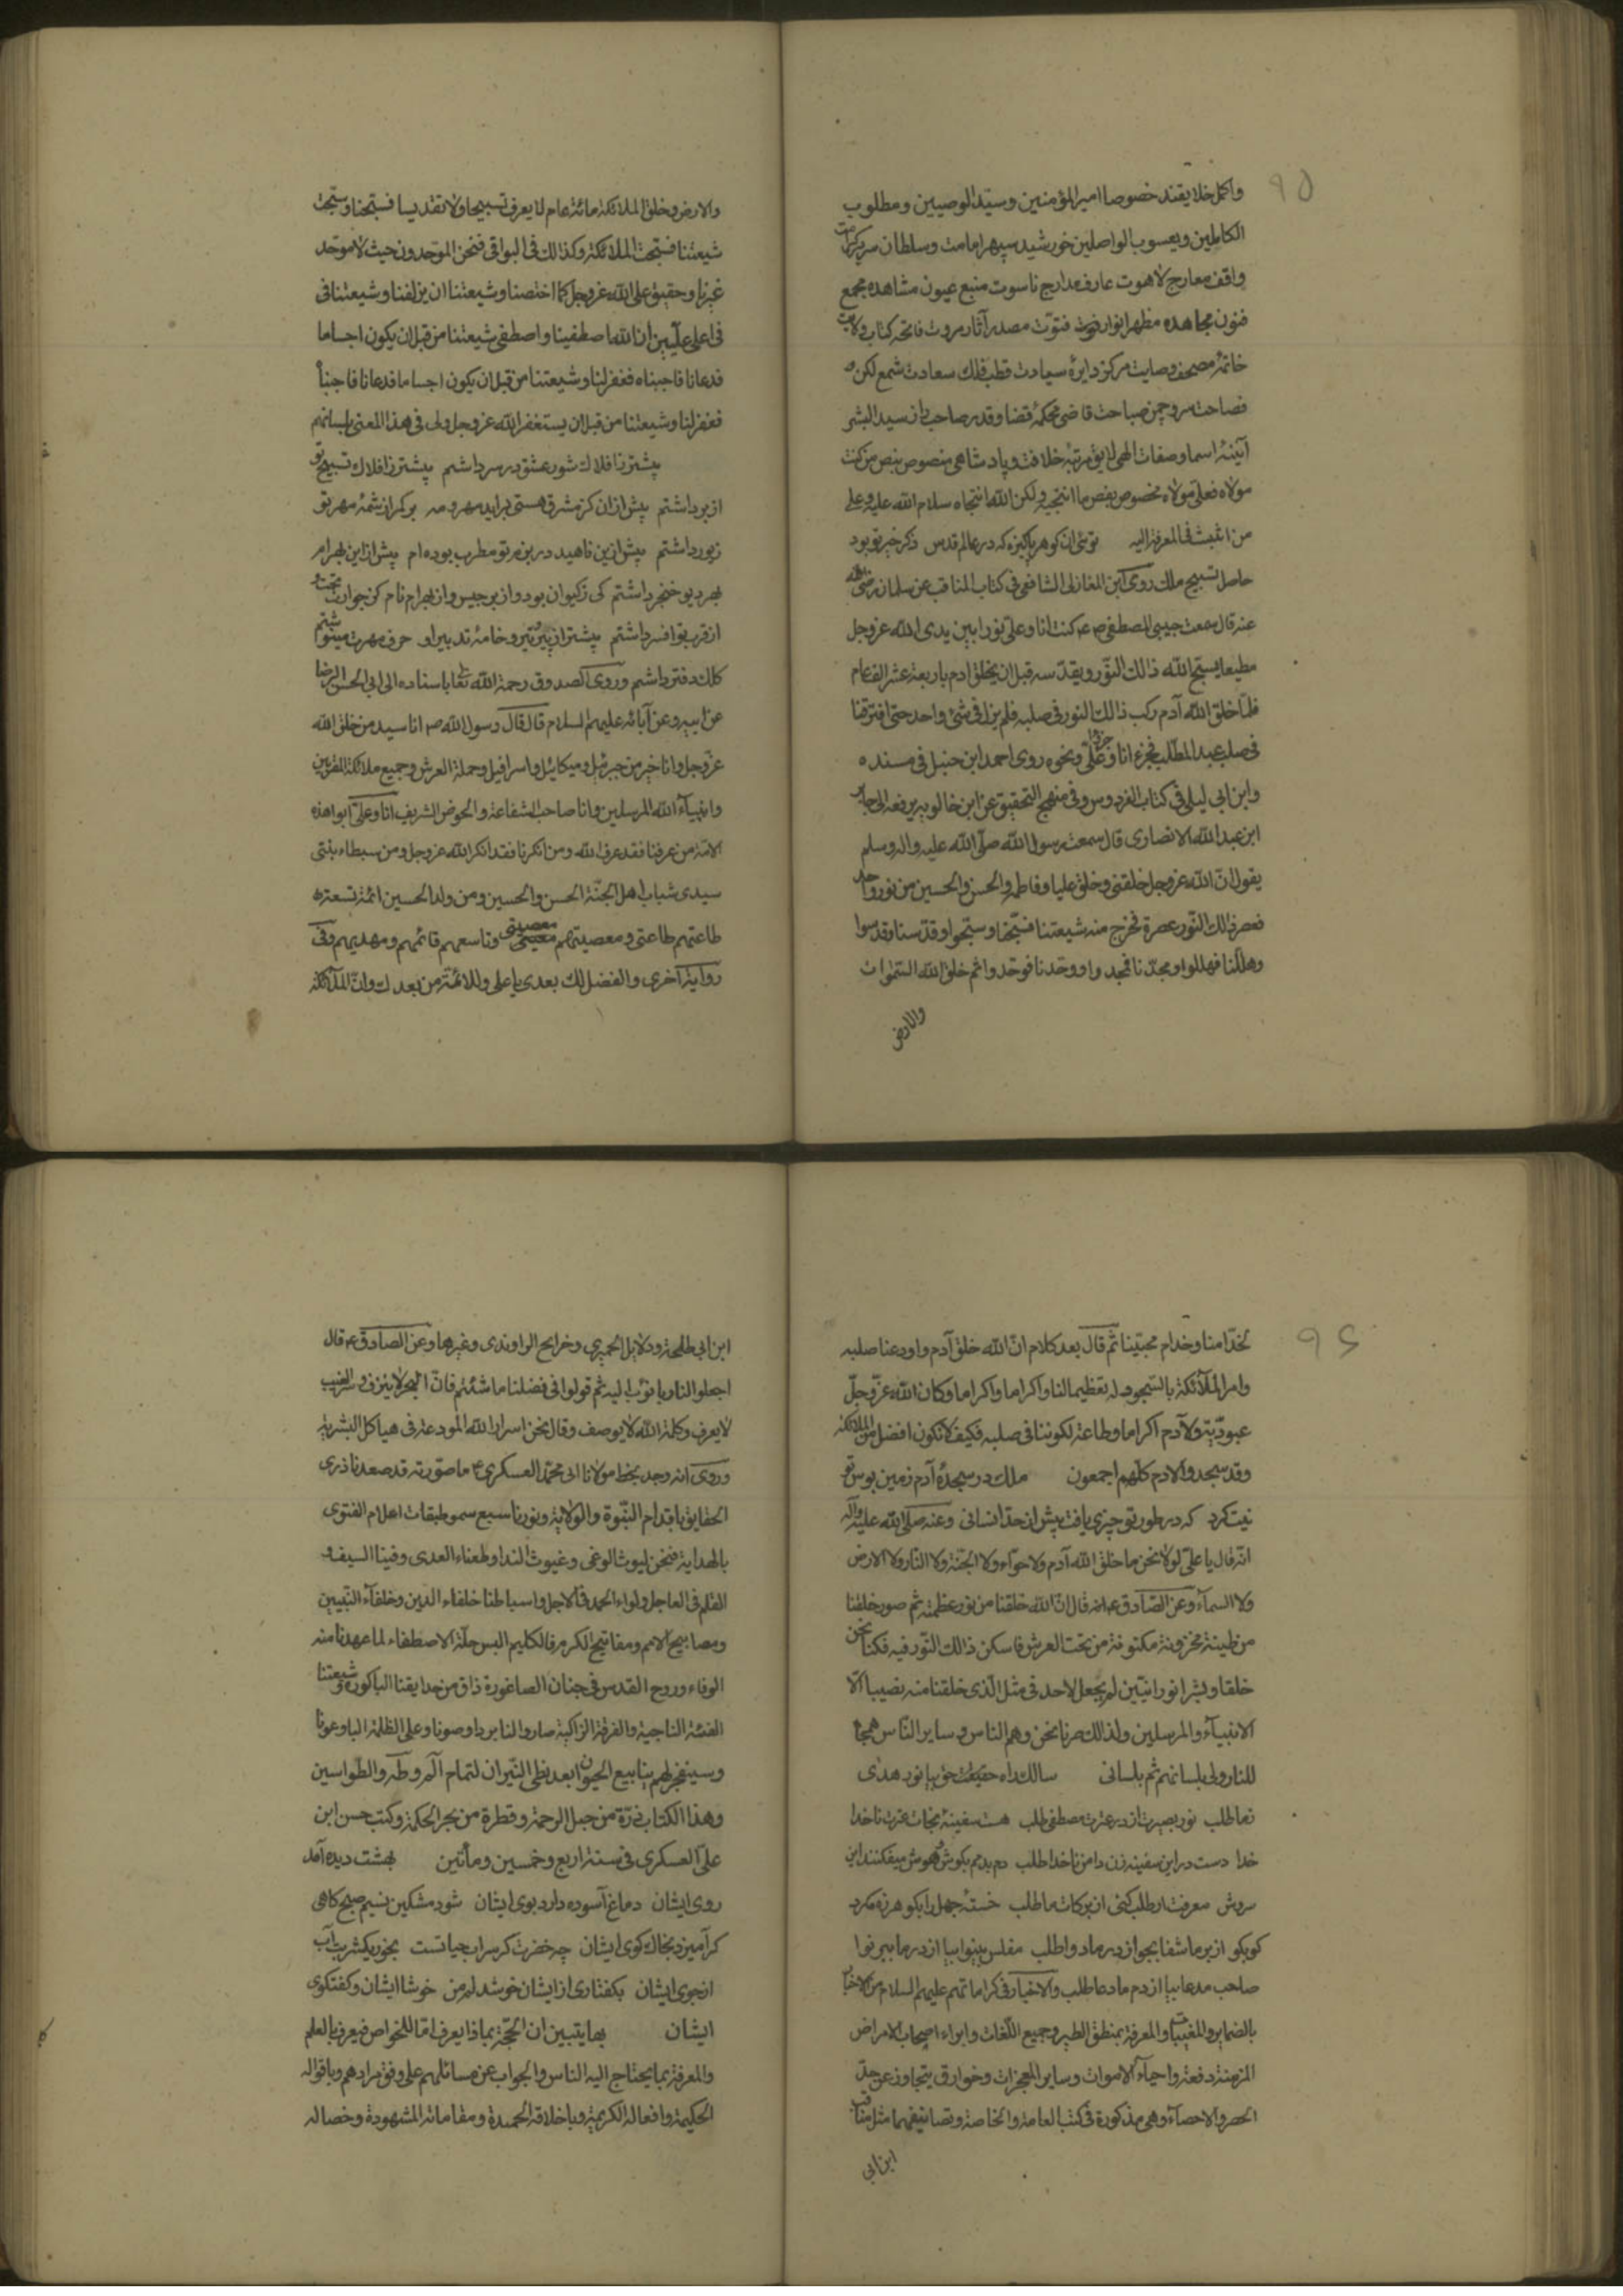 ۹۵
واکمل خلایقند خصوصا امیر المؤمنین وسید الوصیین ومطلوب
الکاملین ویعسوب الواصلین خورشید سپهر امامت وسلطان سریر کرامت
واقف معارج لاهوت عارف مدارج ناسوت منبع عیون مشاهده مجمع
فنون مجاهده مظهر انوار فتوّت مصدر آثار مروت فاتحه کتاب ولایت
خاتمهٔ مصحف وصایت مرکز دایرهٔ سیادت قطب فلک سعادت شمع لکن
فصاحت سرو چمن صباحت قاضی محکمهٔ قضا وقدر صاحب راز سید البشر
آئینهٔ اسما وصفات الهی لایق مرتبهٔ خلافت وپادشاهی منصوص بنص من کنت
مولاه فعلی مولاه مخصوص بفص ما انتجیه ولکن الله انتجاه سلام الله علیه وعلی
من انبعث فی المعرفة الیه توئی ان کوهر پاکیزه که در عالم قدس ذکر خیر تو بود
حاصل تسبیح ملک روی ابن المغازلی الشافعی فی کتاب المناقب عن سلمان رضی الله
عنه قال سمعت حبیبی المصطفی ص ع کنت انا وعلی نورا بین یدی الله عز وجل
مطیعا یسبّح الله ذالک النّور ویقدّسه قبل ان یخلق ادم باربعة عشر الف عام
فلمّا خلق الله آدم رکب ذالک النور فی صلبه فلم یزل فی شئ واحد حتی افترقنا
فی صلب عبد المطّلب فجزء انا وجزء علیّ ونحوه روی احمد ابن حنبل فی مسنده
وابن ابی لیلی فی کتاب الفردوس وفی منهج التحقیق عن ابن خالویه یرفعه الی جابر
ابن عبد الله الانصاری قال سمعت رسول الله صلّی الله علیه واله وسلم
یقول انّ الله عز وجل خلقنی وخلق علیا وفاطمه والحسن والحسین من نور واحد
فعصر ذالک النّور عصرة فخرج منه شیعتنا فسبّحنا وسبّحوا وقدّسنا وقدسوا
وهلّلنا فهللوا ومجدّنا فمجدوا ووحّدنا فوحّدوا ثم خلق الله السّموات
والارض
والارض وخلق الملائکة مائة عام لا یعرف تسبیحا ولا تقدیسا فسبّحنا وسبّحت
شیعتنا فسبّحت الملائکة وکذالک فی البواقی فنحن الموّحدون حیث لا موحّد
غیرنا وحقیق علی الله عز وجل کما اختصنا وشیعتنا ان یزلفنا وشیعتنا فی
فی اعلی علّیین ان الله اصطفینا واصطفی شیعتنا من قبل ان یکون اجساما
فدعانا فاجبناه فغفر لنا وشیعتنا من قبل ان یکون اجساما فدعانا فاجبنا
فغفر لنا وشیعتنا من قبل ان یستغفر الله عز وجل ولی فی هذا المعنی بلسانهم
پیشتر ز افلاک شور عشق در سر داشتم پیشتر ز افلاک تسبیح تو
از بر داشتم پیش ازان کز مشرق هستی براید مهر ومه بر کمر از شمّهٔ مهر تو
زیور داشتم پیش ازین ناهید در بزم تو مطرب بوده ام پیش از این بهرام
بهر دیو خنجر داشتم کی ز کیوان بود واز برجیس واز بهرام نام کز جوارت تخت
از قرب تو افسر داشتم پیشتر از پیر تیر وخامهٔ تدبیر او حرف مهرت مینوشتم
کلک دفتر داشتم وروی الصدوق رحمة الله تعالی باسناده الی ابی الحسن الرضا
عن ابیه وعن آبائه علیهم السلام قال قال رسول الله ص انا سید من خلق الله
عزّ وجل وانا خیر من جبرئیل ومیکائیل واسرافیل وحملة العرش وجمیع ملائکة المقربین
وانبیآء الله المرسلین وانا صاحب الشفاعة والحوض الشریف انا وعلی ابوا هذه
الامّة من عرفنا فقد عرف الله ومن انکرنا فقد انکر الله عز وجل ومن سبطاء بنتی
سیدی شباب اهل الجنّة الحسن والحسین ومن ولد الحسین ائمّة تسعة
طاعتهم طاعتی ومعصیتهم معصیتی وتاسعهم قائمهم ومهدیهم وفی
روایة اخری والفضل لک بعدی یا علی وللائمّة من بعدک وانّ الملائکة
۹۶
لخدّامنا وخدام محبّینا ثم قال بعد کلام انّ الله خلق آدم واودعنا صلبه
وامر الملآئکة بالسّجود له تعظیما لنا واکراما واکراما وکان الله عزّ وجلّ
عبودیّة ولآدم اکراما وطاعة لکوننا فی صلبه فکیف لا نکون افضل من الملائکة
وقد سجدوا لادم کلهم اجمعون ملک در سجدهٔ آدم زمین بوس تو
نیت کرد که در طور تو چیزی یافت بیش از حدّ انسانی وعنه صلّی الله علیه وآله
انّه قال یا علیّ لولا نحن ما خلق الله آدم ولا حوّاء ولا الجنّة ولا النّار ولا الارض
ولا السمآء وعن الصّادق ع انه قال انّ الله خلقنا من نور عظمته ثم صور خلقنا
من طینة مخزونة مکنونة من تحت العرش فاسکن ذالک النّور فیه فکنا نحن
خلقا وبشرا نورانیّین لم یجعل لاحد فی مثل الّذی خلقنا منه نصیبا الّا
الانبیآء والمرسلین ولذالک صرنا نحن وهم الناس وسایر النّاس همجا
للنار ولی بلسانهم ثم بلسانی سالک راه حقیقت حق بیا نور هدی
ز ما طلب نور بصیرت از در عترت مصطفی طلب هست سفینهٔ نجات عترت ناخدا
خدا دست در این سفینه زن دامن ناخدا طلب دم بدم بکوش هوش میفکنند این
سروش معرفت ار طلب کنی از برکات ما طلب خستهٔ جهل را بکو هرزه مکرد
کو بکو از بر ما شفا بجو از در ما دوا طلب مفلس بینوا بیا از در ما ببر نوا
صاحب مدعا بیا از دم ما دعا طلب والاخبار فی کراماتهم علیهم السلام من الاخبار
بالضمایر والمغیّبات والمعرفة بمنطق الطیر وجمیع اللّغات وابراء اصحاب الامراض
المزمنة دفعة واحیآء الاموات وسایر المعجزات وخوارق یتجاوز عن حدّ
الحصر والاحصآء وهی مذکورة فی کتب العامة والخاصة وتصانیفهما مثل مناقب
ابن ابی
ابن ابی طلحة ودلایل الحمیری وخرایج الراوندی وغیرها وعن الصادق ع قال
اجعلوا لنا ربا نؤب الیه ثم قولوا فی فضلنا ما شئتم فانّ البحر لا ینزف وسر الغیب
لا یعرف وکلمة الله لا یوصف وقال نحن اسرار الله المودعة فی هیاکل البشریة
وروی انه وجد بخط مولانا ابی محمّد العسکری ع ما صورته قد صعدنا ذری
الحقایق باقدام النّبوة والولایة ونورنا سبع سمو طبقات اعلام الفتوی
بالهدایة فنحن لیوث الوغی وغیوث الندا وطعناء العدی وفینا السیف و
القلم فی العاجل ولواء الحمد فی الآجل واسباطنا خلفاء الدین وخلفآء النّبیین
ومصابیح الامم ومفاتیح الکرم فالکلیم البس حلّة الاصطفاء لما عهدنا منه
الوفاء وروح القدس فی جنان الصاغورة ذاق من حدایقنا الباکورة وشیعتنا
الفئة الناجیة والفرقة الزاکیة صاروا لنا بردا وصونا وعلی الظلمة البا وعونا
وسینفجر لهم ینابیع الحیوان بعد لظی النّیران لتمام آلم وطه والطّواسین
وهذا الکتاب ذرّة من جبل الرحمة وقطرة من بحر الحکمة وکتب حسن ابن
علی العسکری فی سنة اربع وخمسین ومأتین بهشت دیده آمد
روی ایشان دماغ آسوده دارد بوی ایشان شود مشکین نسیم صبح کاهی
کر آمیزد بخاک کوی ایشان چه خضرت کر سراب حیاتست بخور یکشربت آب
از جوی ایشان بکفتاری از ایشان خوشدلم من خوشا ایشان وکفتکوی
ایشان بها یتبین ان الحجّة بماذا یعرف امّا للخواص فیعرف بالعلم
والمعرفة بما یحتاج الیه الناس والجواب عن مسائلهم علی وفق مرادهم وباقواله
الحکیمة وافعاله الکریمة وباخلاقه الحمیدة ومقاماته المشهودة وخصاله